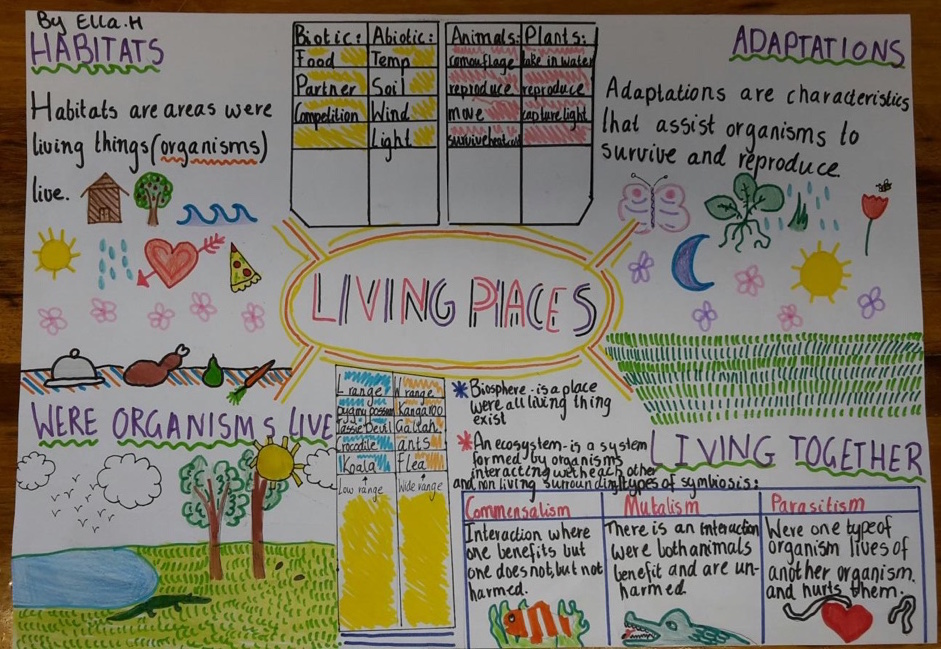 By Ella.H
HABITATS
Habitats are areas were
living things (organisms)
live.
Biotic: Abiotic:
Food Temp
Partner Soil
Competition Wind
Light
Animals: Plants:
camouflage take in water
reproduce reproduce
move capture light
survive heat
ADAPTATIONS
Adaptations are characteristics
that assist organisms to
survive and reproduce.
LIVING PLACES
WERE ORGANISMS LIVE
L range W range
pygmy possum Kangaroo
Tassie Devil Gallah
Crocodile ants
Koala Flea
Low range Wide range
* Biosphere - is a place
were all living thing
exist
* An ecosystem - is a system
formed by organisms
interacting with each other
and non living surrounding
LIVING TOGETHER
types of symbiosis:
Commensalism
Interaction where
one benefits but
one does not, but not
harmed.
Mutalism
There is an interaction
were both animals
benefit and are un-
harmed.
Parasitism
Were one type of
organism lives of
another organism.
and hurts them.